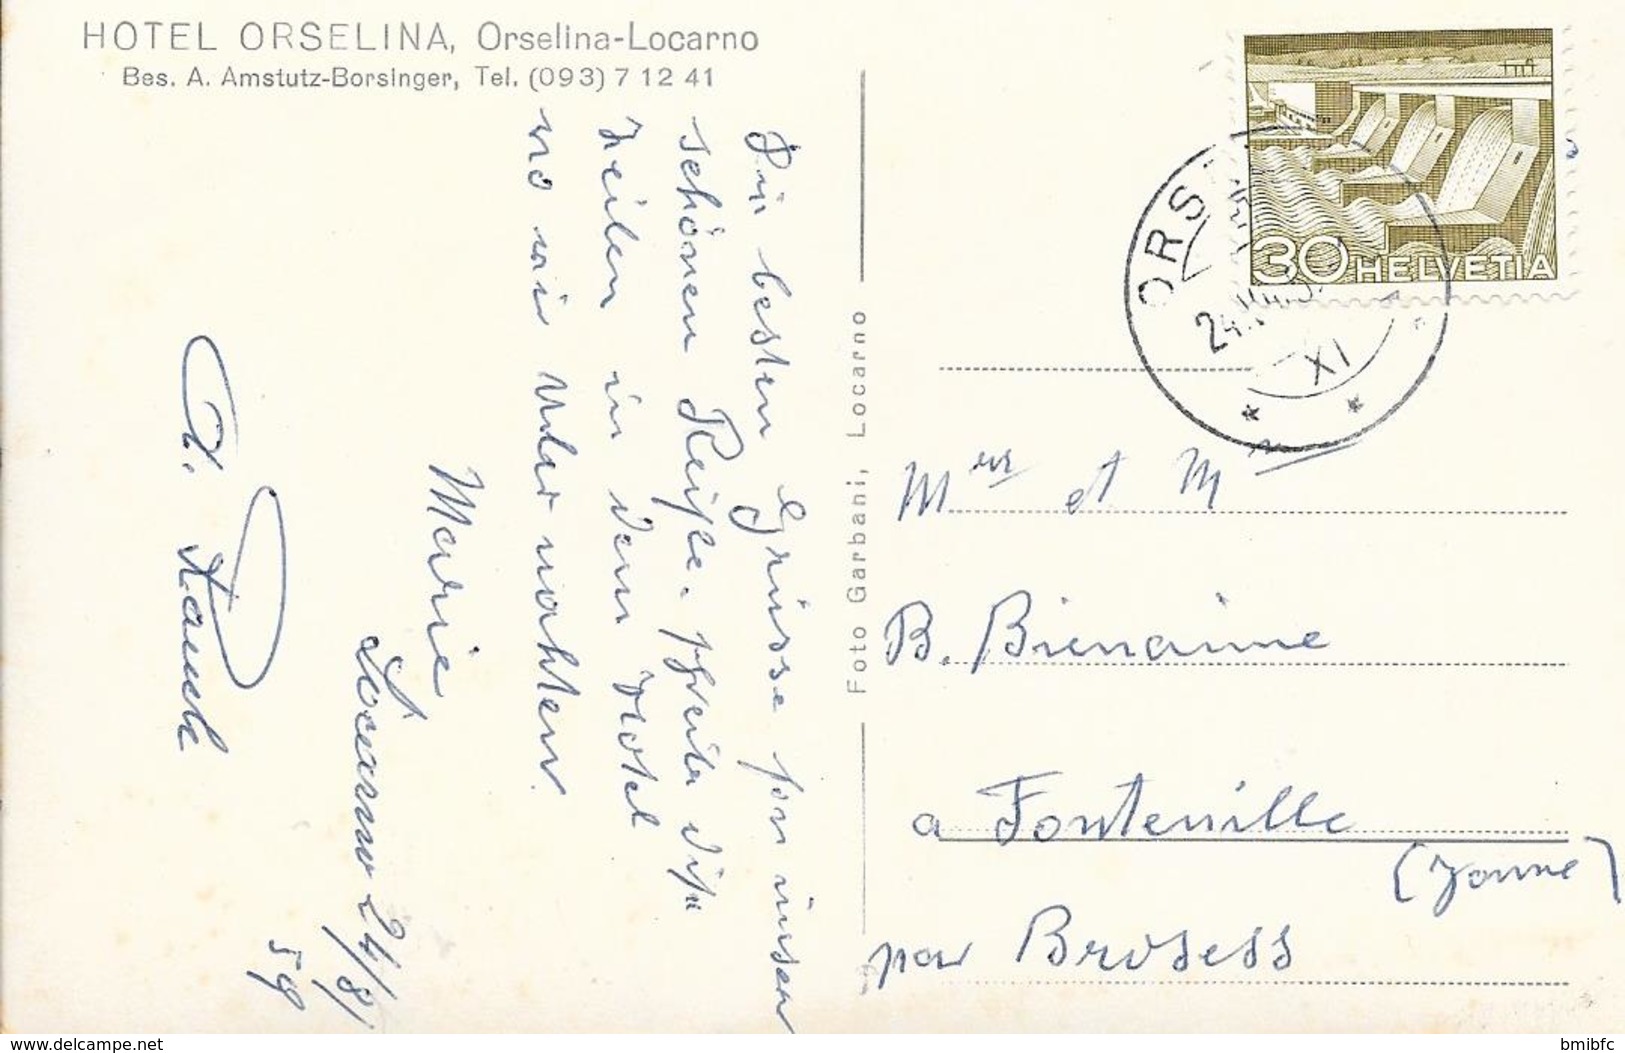 HOTEL ORSELINA, Orselina-Locarno
Bes. A. Amstutz-Borsinger, Tel. (093) 7 12 41
Die besten Grüsse fon unsen
schönen Reise. schreibe diese
Zeilen in dem Hotel
wo wir Uber nachten.
Marie
Locarno 24/8/
59
Foto Garbani, Locarno
30 HELVETIA
ORS
24.
XI
et M
B. Bienaime
a Fontenille
(Yonne)
par Brosess
delcampe.net
bmibfc